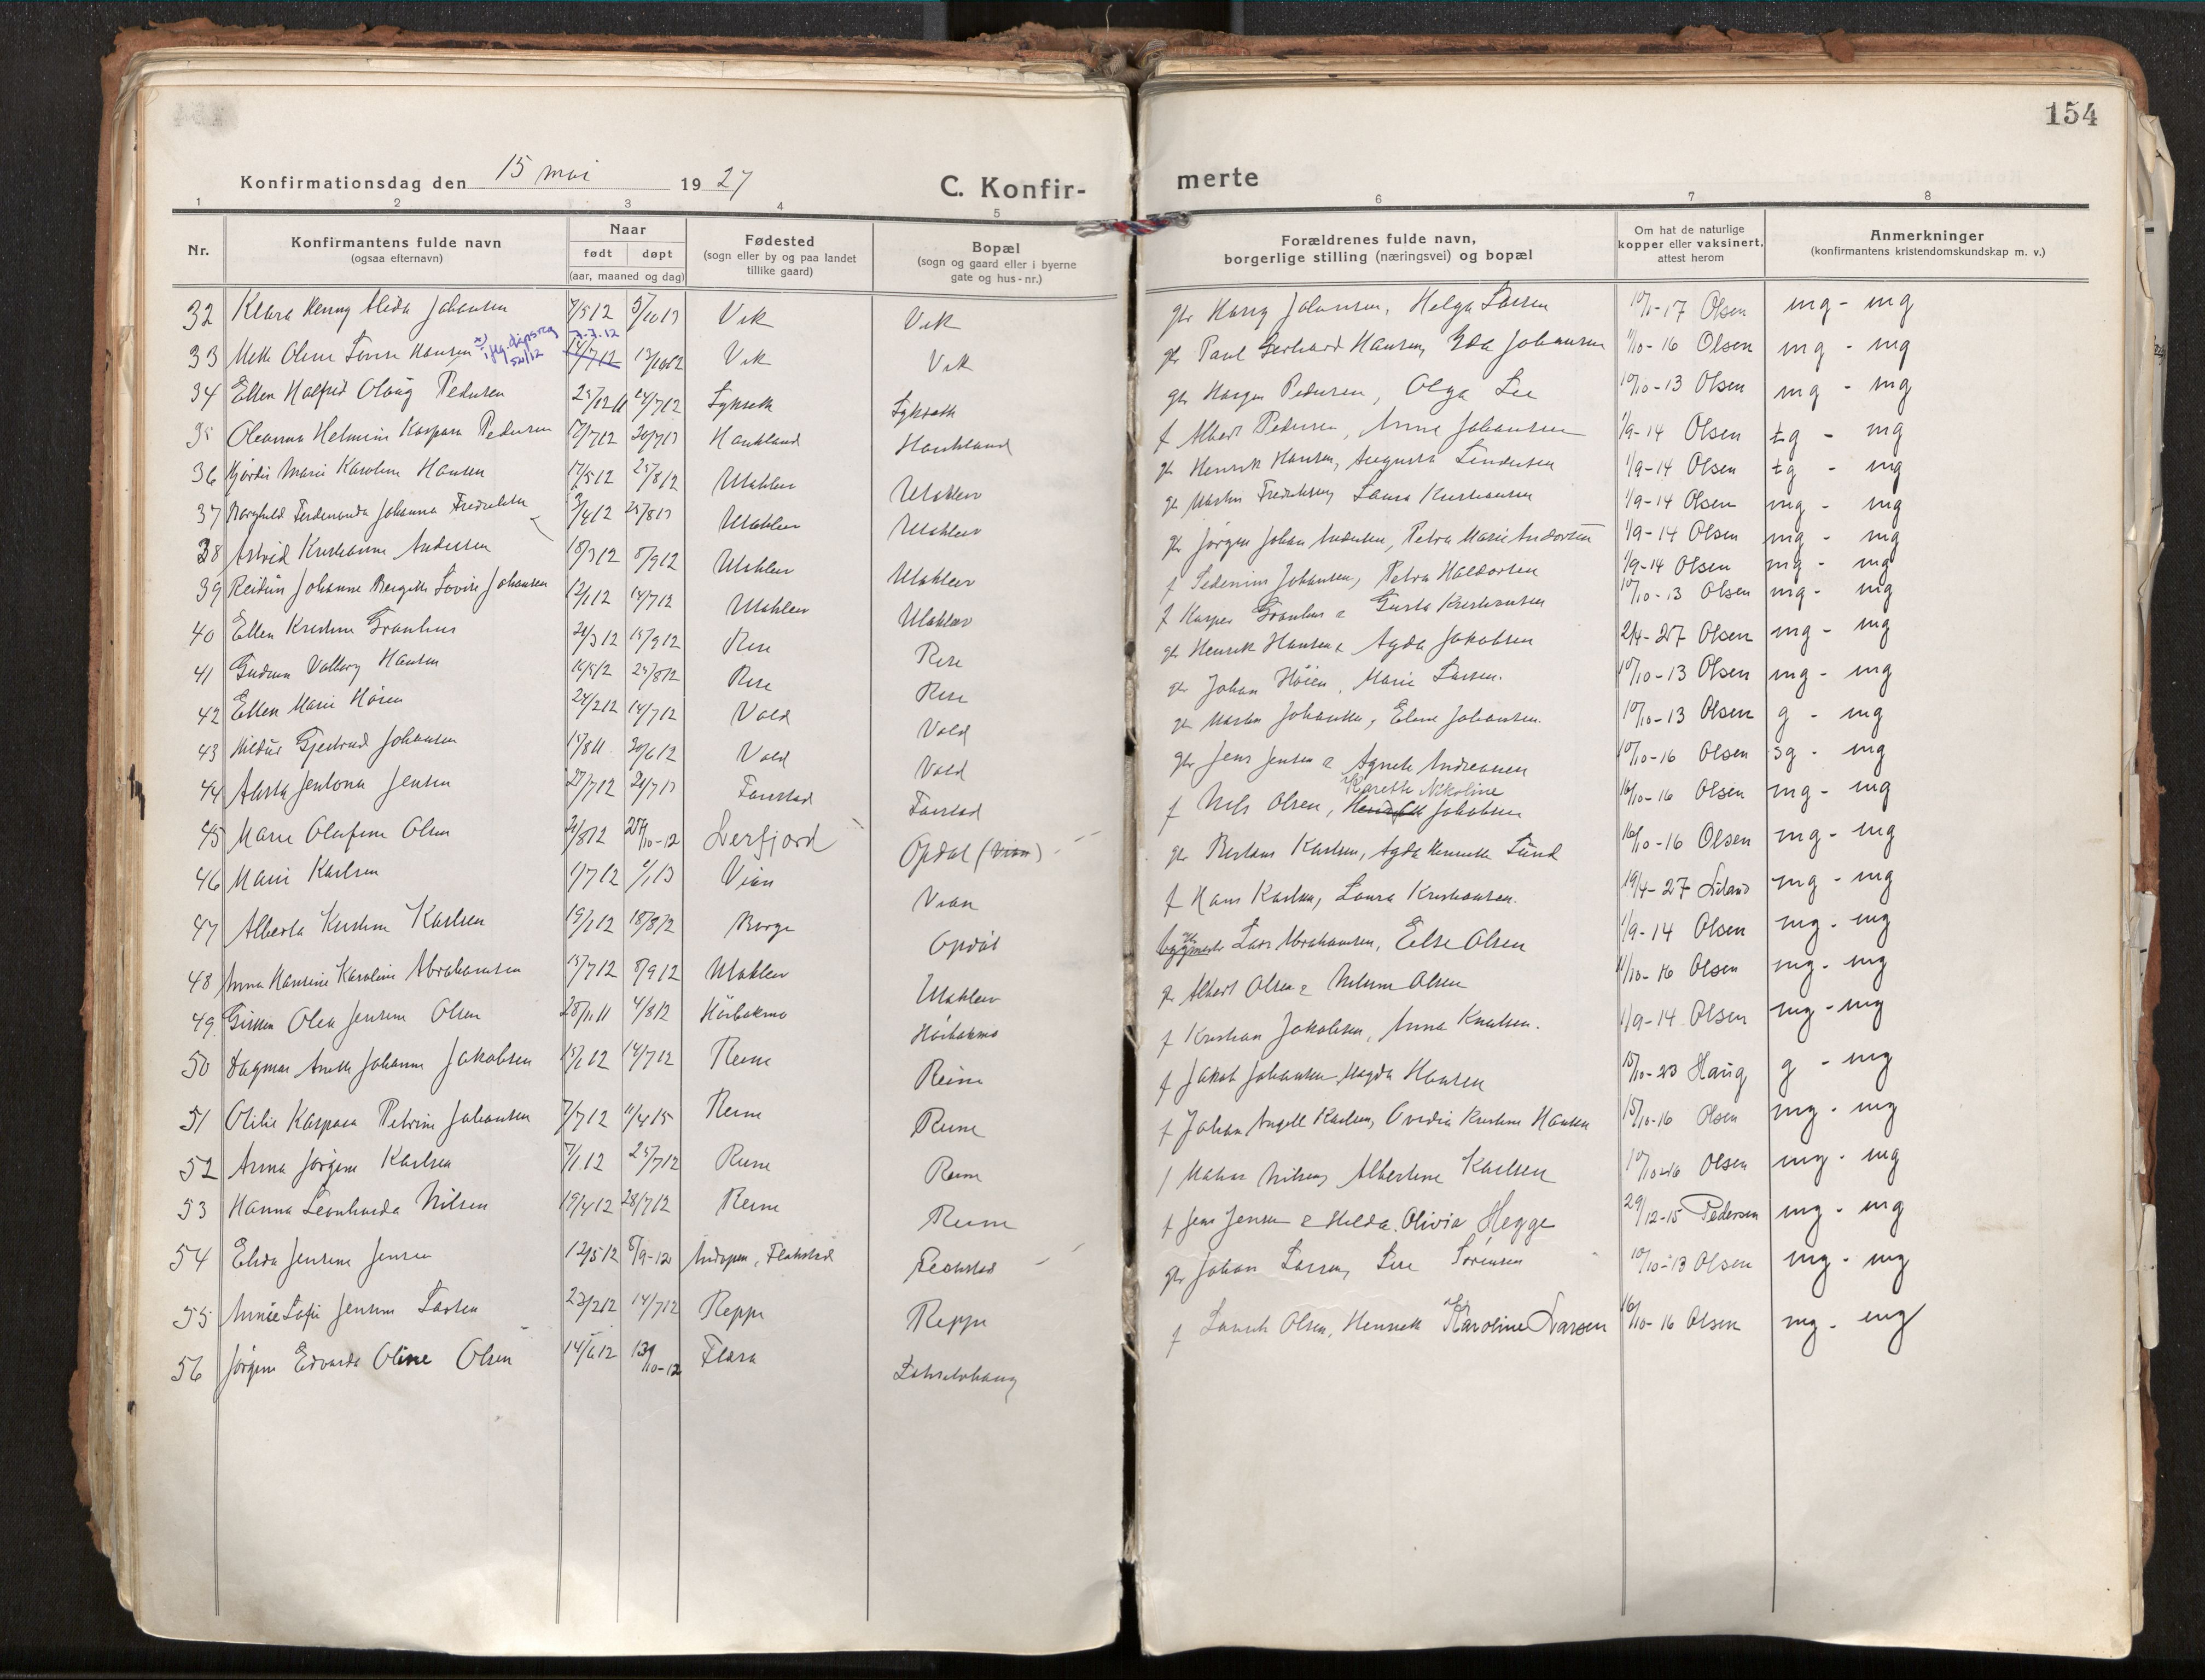 154
Konfirmationsdag den 15 mai 1927
C. Konfir-
merte
1 2 3 4 5 6 7 8
Nr.
Konfirmantens fulde navn
(ogsaa efternavn)
Naar
født døpt
(aar, maaned og dag)
Fødested
(sogn eller by og paa landet
tillike gaard)
Bopæl
(sogn og gaard eller i byerne
gate og hus-nr.)
Forældrenes fulde navn,
borgerlige stilling (næringsvei) og bopæl
Om hat de naturlige
kopper eller vaksinert,
attest herom
Anmerkninger
(konfirmantens kristendomskundskap m. v.)
32 Klara Henny Alida Johansen 7/5 12 Vik Vik gbr Harry Johansen, Helga Larsen 10/1-17 Olsen mg - mg
7.7.12
33 Mette Oline Lovise Hansen 14/7 12 13/10 12 Vik Vik gbr Paul Gerhard Hansen, Ida Johansen 11/10-16 Olsen mg - mg
34 Ellen Halfrid Olaug Pedersen 25/12 11 24/7 12 gbr Pedersen, Olga Lie 10/10-13 Olsen mg - mg
35 Oleanna Helmine Kaspara Pedersen 17/7 12 Haukland Haukland f Albert Pedersen, Anna Johansen 1/9-14 Olsen tg - mg
36 Hjördis Marie Karoline Hansen 17/5 12 25/8 12 Utakleiv Utakleiv gbr Henrik Hansen, Augusta 1/9-14 Olsen tg - mg
37 Borghild Ferdinanda Johanna Fredriksen 3/4 12 Utakleiv Utakleiv gbr Martin Fredriksen, Laura Kristiansen 1/9-14 Olsen mg - mg
38 Astrid Kristianne Andersen 18/3 12 8/9 12 Utakleiv Utakleiv gbr Jørgen Johan Andersen, Petra Marie Andersen 1/9-14 Olsen mg - mg
39 Reidun Johanne Bergitte Lovise Johansen 12/1 12 14/7 12 Utakleiv Utakleiv f Johansen, Petra Haldorsen 1/9-14 Olsen mg - mg
40 Ellen Kristine Granhus 21/3 12 15/9 12 Rise Rise f Kasper Granhus & Gusta Kristiansen 10/10-13 Olsen mg - mg
41 Gudrun Valborg Hansen 16/5 12 25/8 12 Rise Rise gbr Henrik Hansen & Agda Jakobsen 2/4-27 Olsen mg - mg
42 Ellen Marie Höien 24/2 12 14/7 12 Vold Vold gbr Johan Höien, Marie Larsen. 10/10-13 Olsen mg - mg
43 Hildur Gjertrud Johansen 15/8 11 30/6 12 Vold Vold gbr Martin Johansen, Eline Johansen. 10/10-13 Olsen g - mg
44 Jentona Jensen 27/7 12 Farstad Farstad gbr Jens Jensen & Agnete Andreassen 10/10-16 Olsen sg - mg
Karette Nikoline
45 Marie Olufine Olsen 21/8 12 27/10-12 Leirfjord Opdal (Vian) f Nils Olsen, Jakobsen 16/10-16 Olsen mg - mg
46 Marie Karlsen 1/7 12 Vian Vian gbr Karlsen, Agda Henrette Lund 16/10-16 Olsen mg - mg
47 Alberta Kristine Karlsen 19/1 12 18/8 12 Borge Opdal f Hans Karlsen, Laura Kristiansen. 19/4-27 mg - mg
48 Anna Hansine Karoline Abrahamsen 15/7 12 8/9 12 Utakleiv Utakleiv Lars Abrahamsen, Else Olsen 1/9-14 Olsen mg - mg
49 Olea Jensine Olsen 28/11 11 4/8 12 gbr Albert Olsen & Olsen 11/10-16 Olsen mg - mg
50 Dagmar Anette Johanne Jakobsen 15/1 12 14/7 12 Reine Reine f Kristian Jakobsen, Anna Knutsen. 1/9-14 Olsen mg - mg
51 Otilie Kaspara Petrine Johansen 7/7 12 11/4 15 Reine Reine f Jakob Johansen, Magda Hansen 15/10-23 Haug g - mg
52 Anna Jørgine Karlsen 7/1 12 25/7 12 Reine Reine f Johan Angell Karlsen, Ovedia Kristine Hansen 15/10-16 Olsen mg - mg
53 Hanna Leonharda Nilsen 19/4 12 28/7 12 Reine Reine f Nilsen, Albertine Karlsen 10/10-16 Olsen mg - mg
54 Elida Jensine Jensen 12/5 12 8/9-12 Andopen, Flakstad Flakstad f Jens Jensen & Hilda Olivia Hegge 29/12-15 Pedersen mg - mg
55 Sofie Jensine Larsen 23/2 12 14/7 12 Reppe Reppe gbr Johan Larsen, Lise Sörensen 10/10-13 Olsen mg - mg
56 Jørgine Edvarda Oline Olsen 14/6 12 13/10-12 Flæsa f Olsen, Henrette Karoline Larsen 16/10-16 Olsen mg - mg